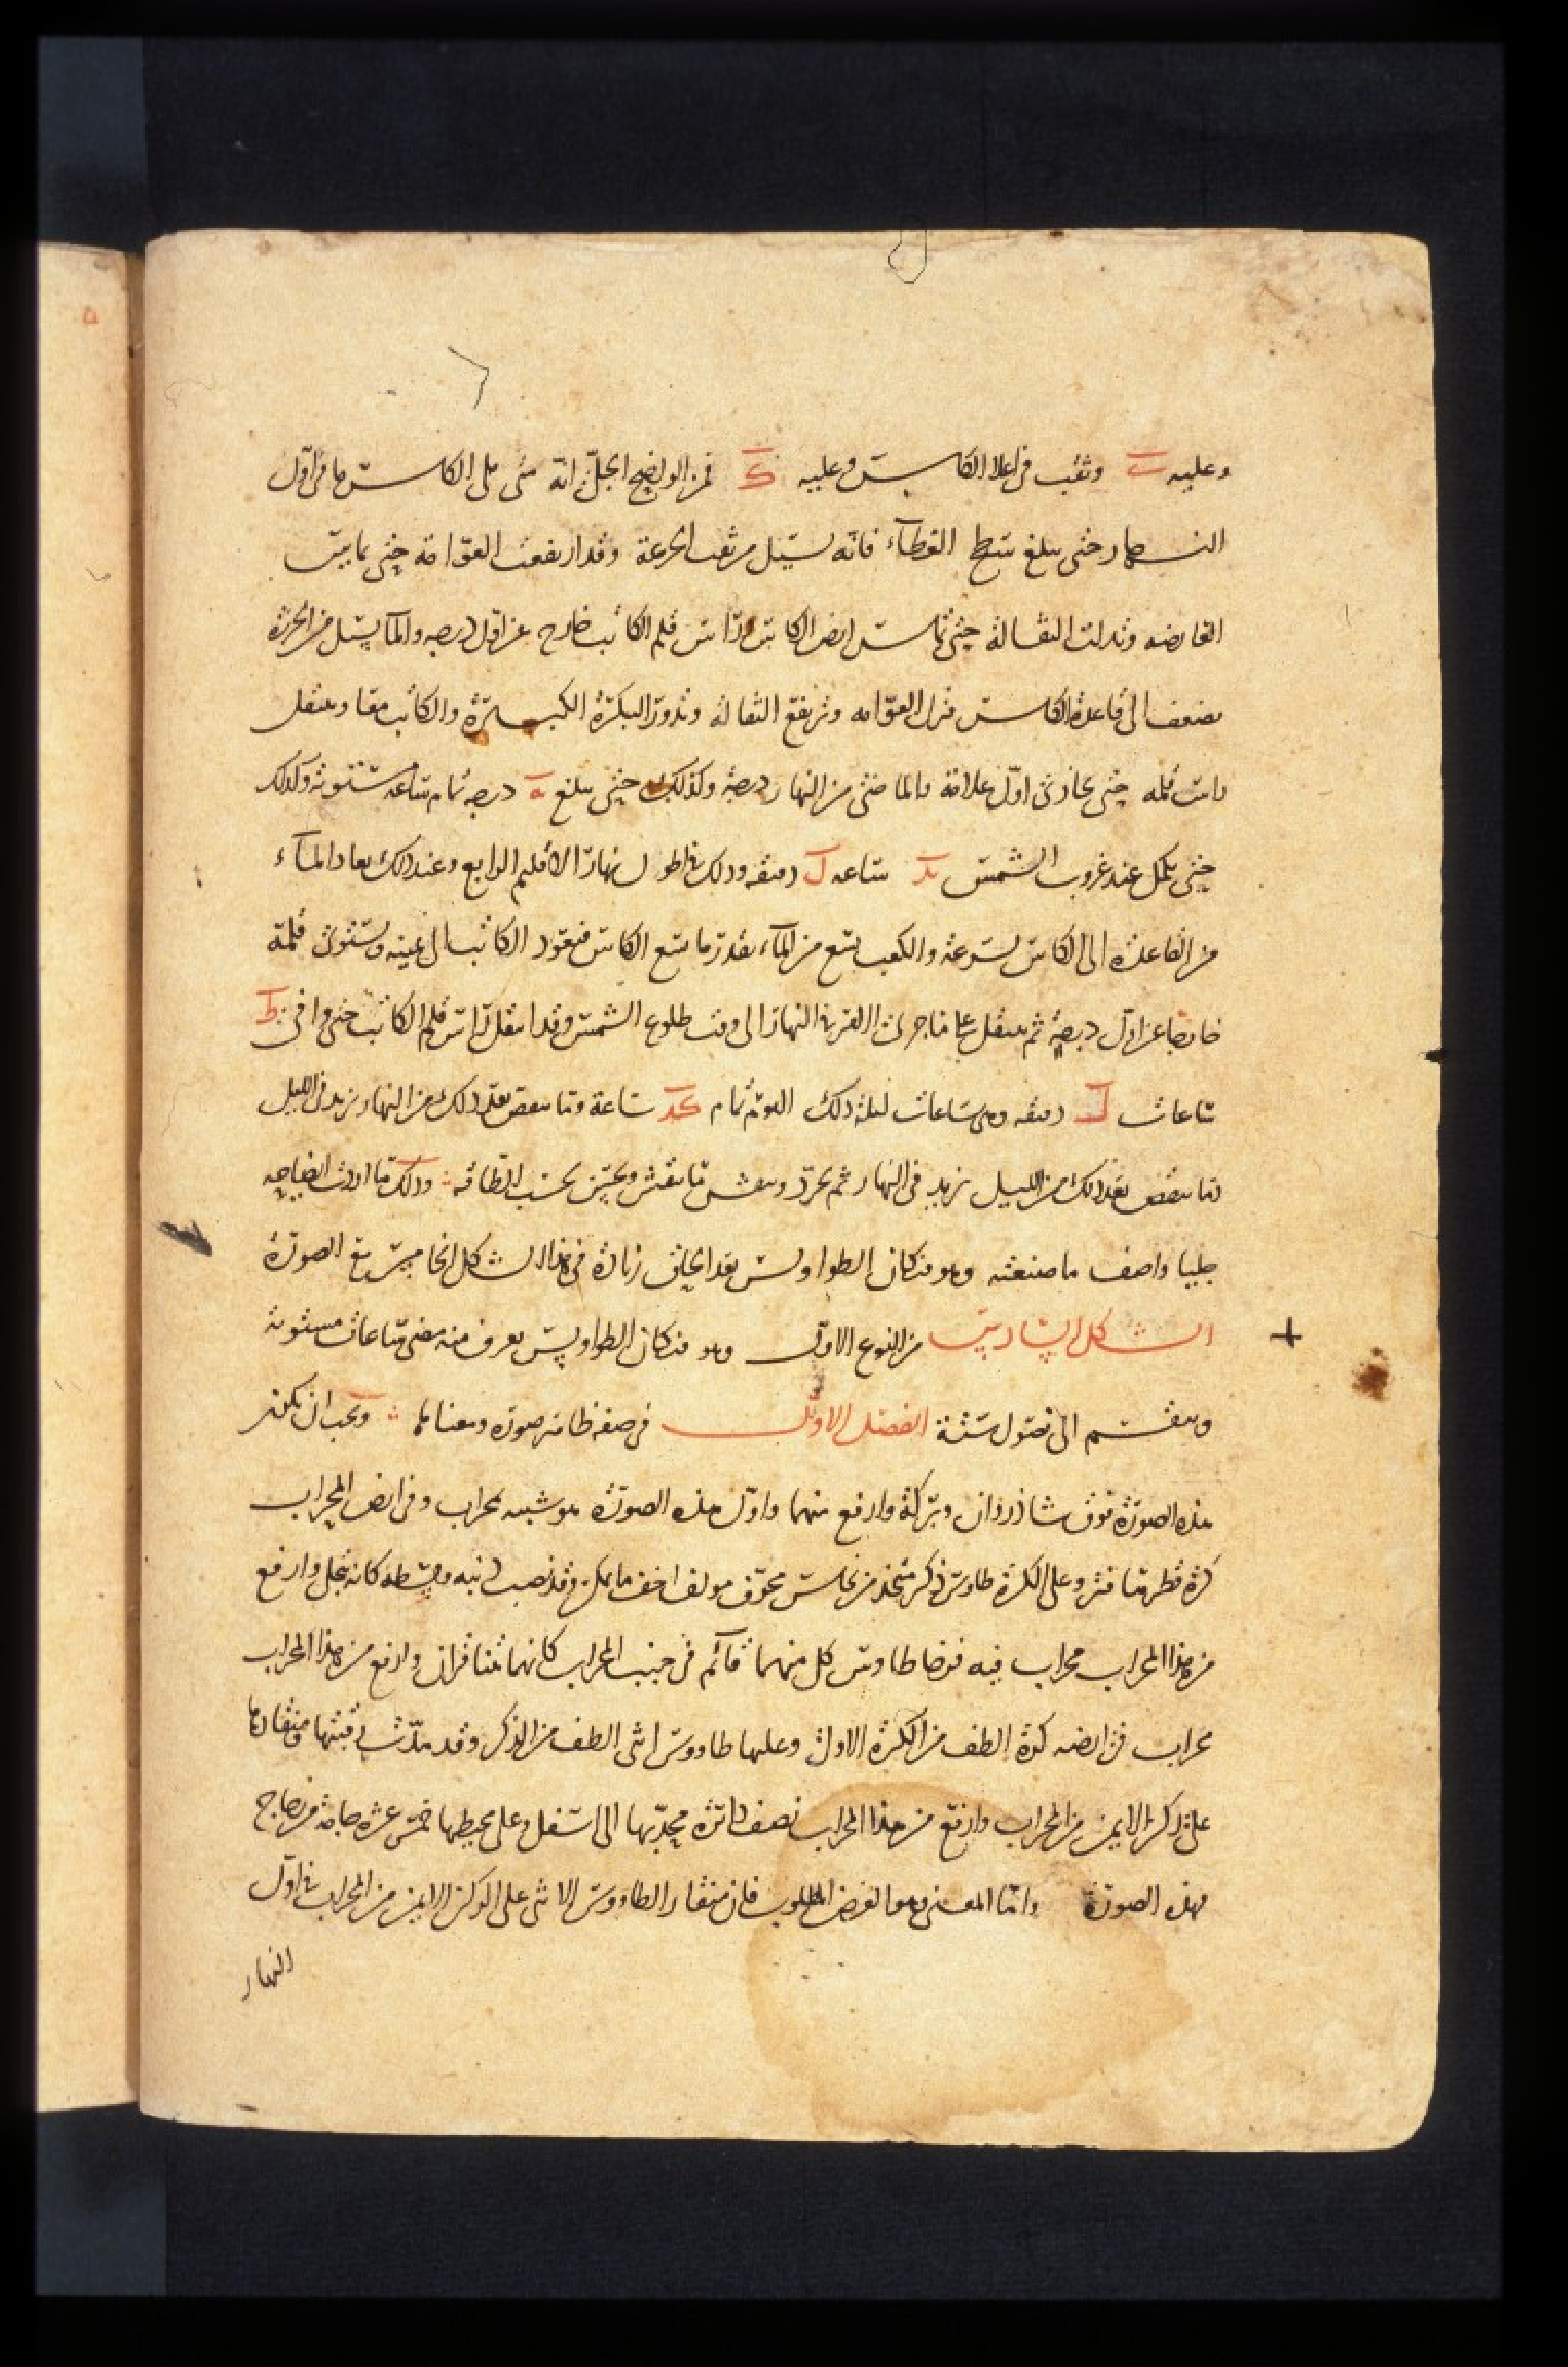 وعليه ب وثقب في اعلا الكاس وعليه ك فمن الواضح الجلي انه متى ملى الكاس ما في اول
النهار حتى يبلغ سطح الغطاء فانه يسيل من ثقب الجزعة وقد ارتفعت العوامة حتى تماس
العارضه وتدلت الثقالة حتى تماس ارض الكاس وراس قلم الكاتب خارج عن اول درجه والماء يسيل من الجزعة
الى قاعدة الكاس فتنزل العوامه وترتفع الثقالة وتدور البكرة الكبيرة والكاتب معا وينتقل
راس قلمه حتى يحاذى اول علامة والماضى من النهار درجة وكذلك حتى يبلغ يه درجه تمام ساعه مستوية وكذلك
حتى تكمل عند غروب الشمس يد ساعه ل دقيقه وذلك في اطول نهار الاقليم الرابع وعند ذلك يعاد الماء
من القاعدة الى الكاس بسرعة والكعب يسع من الماء بقدر ما يسع الكاس فيعود الكاتب الى عينه ويستوى قلمه
خارجا عن اول درجة ثم ينتقل على ما جرى الامر في النهار الى وقت طلوع الشمس وقد انتقل راس قلم الكاتب حتى وافى ط
ساعات ل دقيقه وهى ساعات ليلة ذلك اليوم تمام كد ساعة وما ينقص بعد ذلك من النهار يزيد في الليل
وما ينقص بعد ذلك من الليل يزيد في النهار ثم يحرر وينقش ما ينقش ويحسن بحسب الطاقه وذلك ما اردت ايضاحه
جليا واصف ما صنعته وهو فنكان الطواويس بعد ايحلى زيادة في هذا الشكل الخامس مع الصورة
الشكل السادس من النوع الاول وهو فنكان الطواويس يعرف منه مضى ساعات مستوية
وينقسم الى فصول ستة الفصل الاول في صفة ظاهر صوره ومعناها ويجب ان تكون
هذه الصورة فوق شاذروان وبركة وارفع منهما واول هذه الصورة هو شبيه محراب وفي ارض المحراب
كرة قطرها فتر وعلى الكرة طاوس ذكر متخذ من نحاس مجوف مولف اخف ما يمكن قد نصب ذنبه وبسطه كانه يجل وارفع
من هذا المحراب محراب فيه فرخا طاوس كل منهما قائم في جنب المحراب كانهما يتناقران وارفع من هذا المحراب
محراب في ارضه كرة الطف من الكرة الاولى وعليها طاووس انثى الطف من الذكر وقد مدت رقبتها ومنقارها
على ركن الايمن من المحراب وارفع من هذا المحراب نصف دائرة محدبها الى اسفل وعلى محيطها خمس عشرة جامة من زجاج
بهذه الصورة واما المعنى وهو الغرض المطلوب فان منقار الطاووس الانثى على الركن الايمن من المحراب في اول
النهار